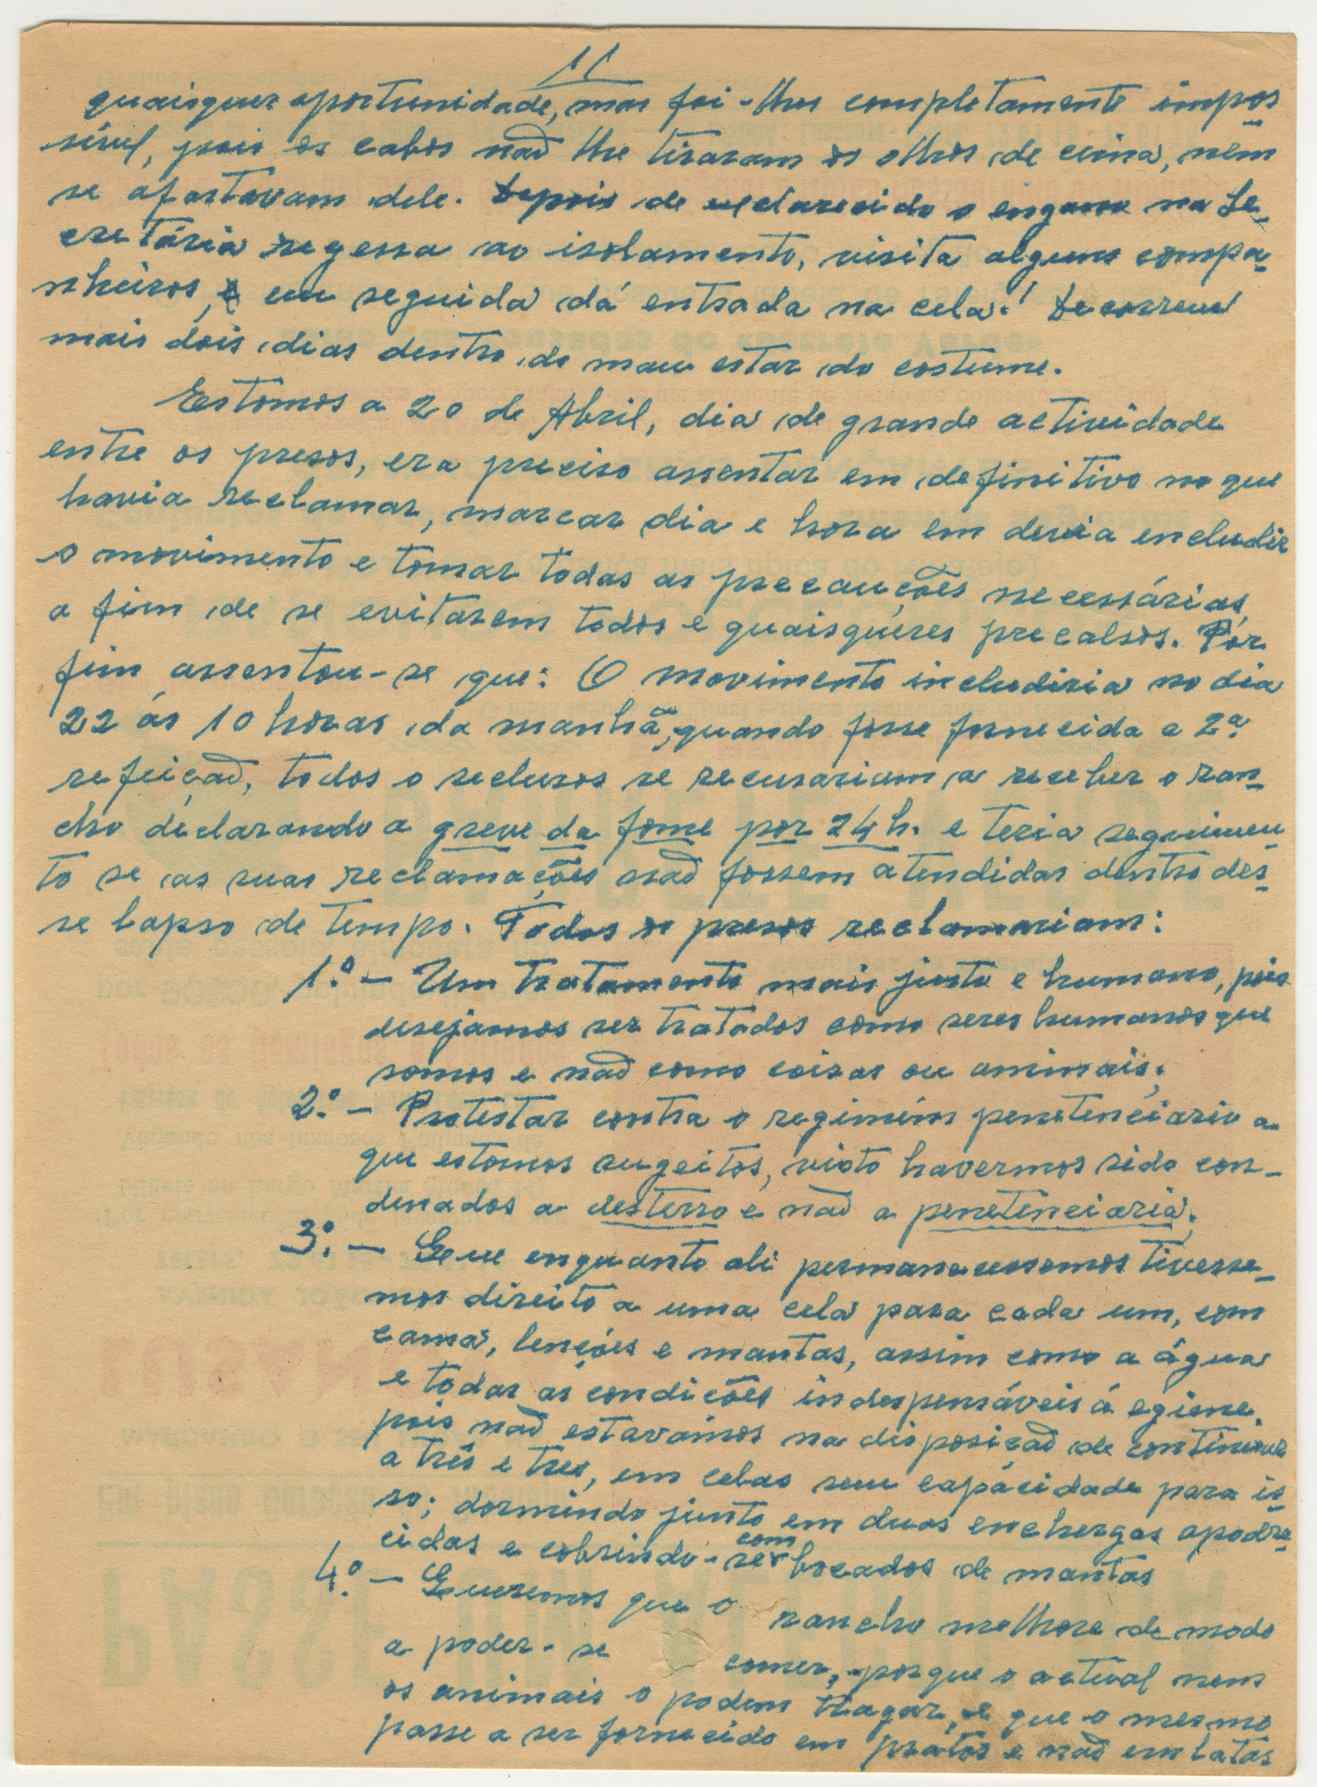 11
quaisquer oportunidade, mas foi-lhes completamente impos
sivel, pois os cabos não lhe tiraram os olhos de cima, nem
se afastavam dele. Depois de esclarecido o engano na Se-
cretária regessa ao isolamento, visita alguns compa-
nheiros, e em seguida dá entrada na cela! Decorreu
mais dois dias dentro do mau estar do costume.
Estamos a 20 de Abril, dia de grande actividade
entre os presos, era preciso assentar em definitivo no que
havia reclamar, marcar dia e hora em devia encludir
o movimento e tomar todas as precauções necessárias,
a fim de se evitarem todos e quaisquéres precalsos. Por
fim assentou-se que: O movimento includiria no dia
22 ás 10 horas da manhã, quando fosse fornecida a 2ª
refeição, todos o reclusos se recusariam a receber o ran-
cho declarando a greve da fome por 24 h. e teria seguimen
to se as suas reclamações não fossem atendidas dentro des-
se lapso de tempo. Todos os presos reclamariam:
1.º — Um tratamento mais justo e humano, pois
desejamos ser tratados como seres humanos que
somos e não como coisas ou animais;
2.º — Protestar contra o regimém penetenciário a
que estamos sugeitos, visto havermos sido con-
denados a desterro e não a penetenciaria;
3.º — Que enquanto ali permanecessemos tivesse-
mos direito a uma cela para cada um, com
cama, lençóes e mantas, assim como a água
e todas as condições indespensáveis á egiene,
pois não estavámos na disposição de continuar
a três e tres, em celas sem capácidade para is-
so; dormindo junto em duas enchergas apodre-
cidas e cobrindo-se com bocados de mantas
4.º — Queremos que o rancho melhore de modo
a poder-se comer, porque o actual nem
os animais o podem tragar, e que o mesmo
passe a ser fornecido em pratos e não em latas